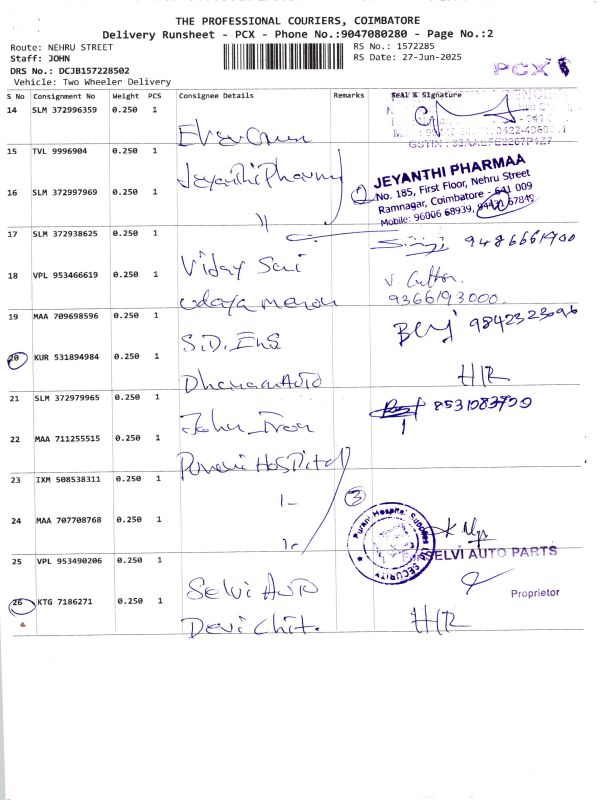 THE PROFESSIONAL COURIERS, COIMBATORE
Delivery Runsheet - PCX - Phone No.:9047080280 - Page No.:2
Route: NEHRU STREET
RS No.: 1572285
Staff: JOHN
RS Date: 27-Jun-2025
DRS No.: DCJB157228502
PCX
Vehicle: Two Wheeler Delivery
S No Consignment No Weight PCS Consignee Details Remarks Seal & Signature
14 SLM 372996359 0.250 1
15 TVL 9996904 0.250 1 Jeyanthi Pharmy
16 SLM 372997969 0.250 1 "
2
JEYANTHI PHARMAA
No. 185, First Floor, Nehru Street
Ramnagar, Coimbatore - 641 009
Mobile: 96006 68939, 94431 67849
17 SLM 372938625 0.250 1 Vijay Sai 9486661900
18 VPL 953466619 0.250 1 Udaya Manon
9366193000
19 MAA 709698596 0.250 1 S.D. Eng 9842323096
20 KUR 531894984 0.250 1 Dhanam Auto H/R
21 SLM 372979965 0.250 1 John Iron
22 MAA 711255515 0.250 1 Purani Hospital
23 IXM 508538311 0.250 1
24 MAA 707708768 0.250 1
3
Purani Hospital Supplies
SECURITY
25 VPL 953490206 0.250 1 Selvi Auto
For SELVI AUTO PARTS
Proprietor
26 KTG 7186271 0.250 1 Devi Chit. H/R